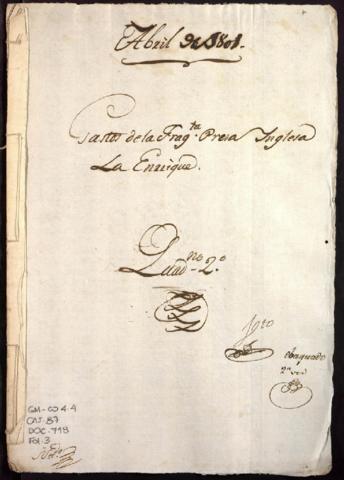 Abril de 1801.
Gastos de la Fragta. Presa Inglesa
La Enrique.
Quadno. 2°
GM-CO 4-4
CAJ-87
DOC-718
Fol-3